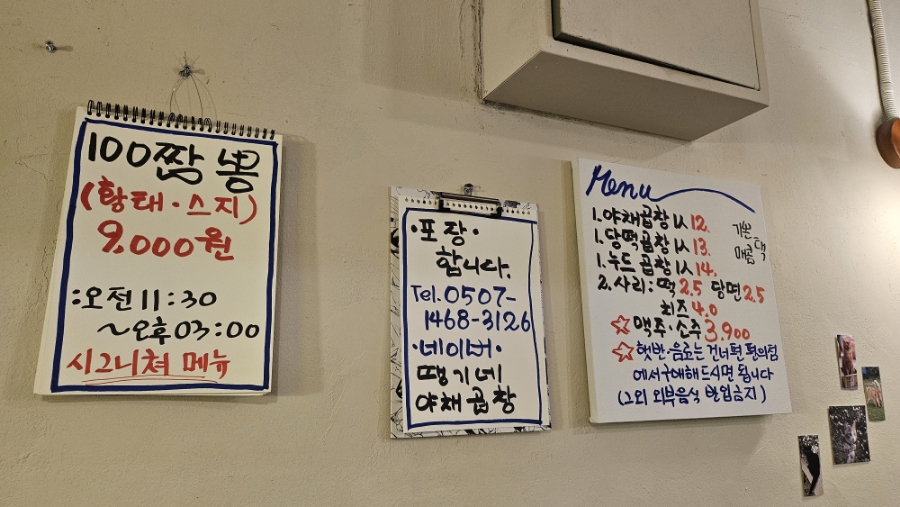 100짬뽕
(황태·스지)
9,000원
:오전11:30
~오후03:00
시그니쳐 메뉴
·포장·
합니다.
Tel.0507-
1468-3126
·네이버·
땡기네
야채곱창
Menu
1.야채곱창 1人 12.
1.당떡곱창 1人 13.
1.누드곱창 1人 14.
기본
매콤
택
2.사리:떡 2.5 당면 2.5
치즈 4.0
☆맥주·소주 3.900
☆햇반·음료는 건너편 편의점
에서 구매해 드시면 됩니다
(그외 외부음식 반입금지)